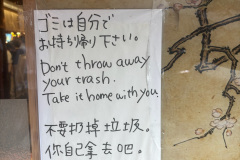 ゴミは自分で
お持ち帰り下さい。
Don't throw away
your trash.
Take it home with you.
不要扔掉垃圾。
你自己拿去吧。